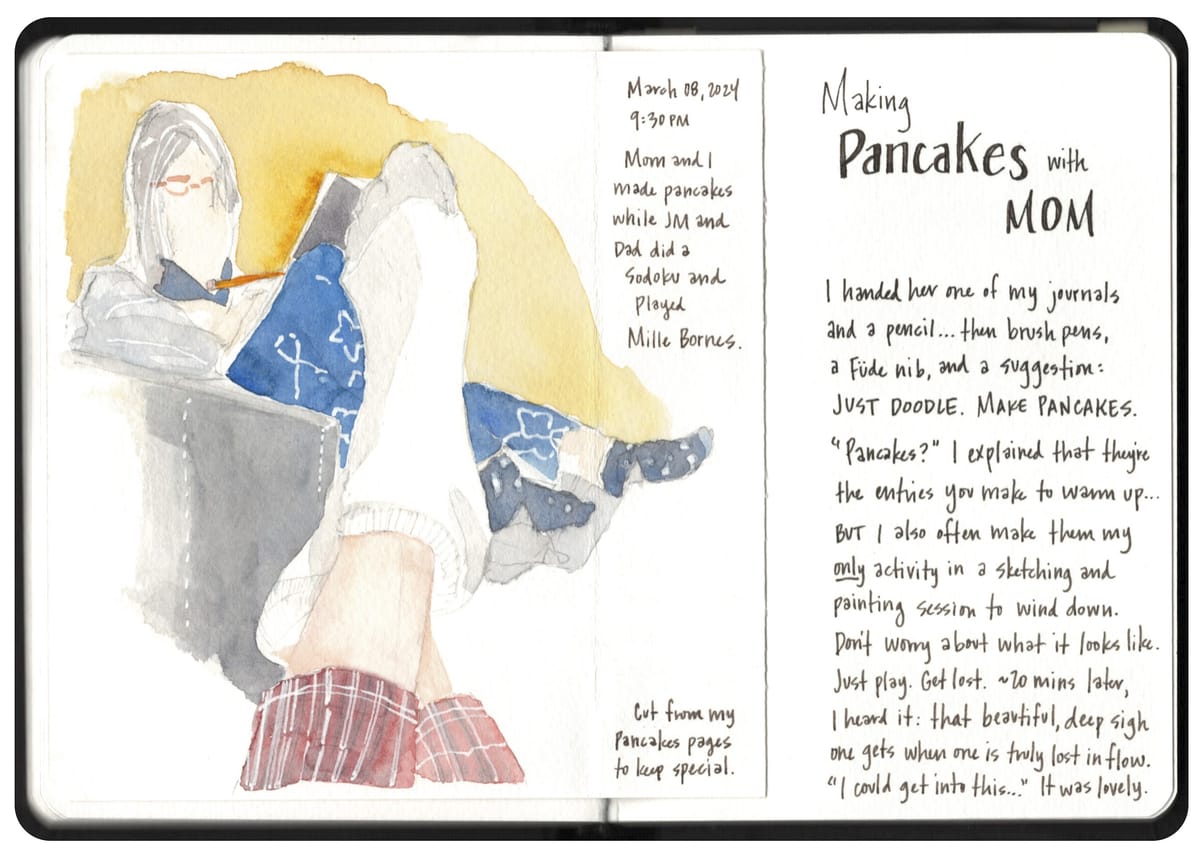 March 08, 2024
9:30 PM
Mom and I
made pancakes
while JM and
Dad did a
Sodoku and
Played
Mille Bornes.
Cut from my
Pancakes pages
to keep special.
Making
Pancakes with
MOM
I handed her one of my journals
and a pencil... then brush pens,
a Füde nib, and a suggestion:
JUST DOODLE. MAKE PANCAKES.
"Pancakes?" I explained that they're
the entries you make to warm up...
BUT I also often make them my
only activity in a sketching and
painting session to wind down.
Don't worry about what it looks like.
Just play. Get lost. ~20 mins later,
I heard it: that beautiful, deep sigh
one gets when one is truly lost in flow.
"I could get into this..." It was lovely.